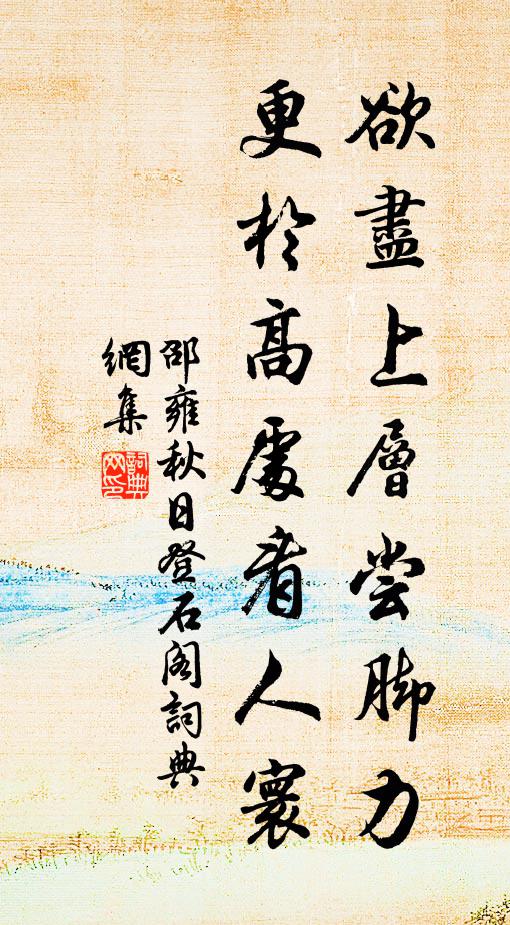 欲盡上層嘗脚力
更於高處看人寰
邵雍秋日登石阁詞典
網集
詞典網印